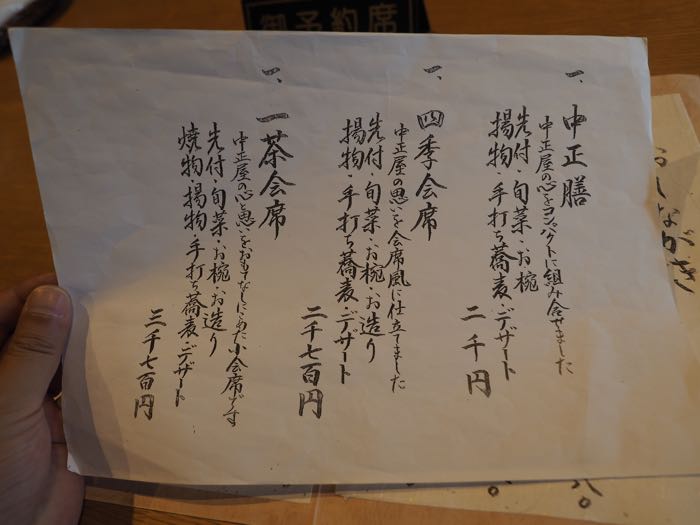 御予約席
おしながき
一、中正膳
中正屋の心をコンパクトに組み合せました
先付・旬菜・お椀
揚物・手打ち蕎麦・デザート
二千円
一、四季会席
中正屋の思いを会席風に仕立てました
先付・旬菜・お椀・お造り
揚物・手打ち蕎麦・デザート
二千七百円
一、一茶会席
中正屋の心と思いをおもてなしにこめた小会席です
先付・旬菜・お椀・お造り
焼物・揚物・手打ち蕎麦・デザート
三千七百円